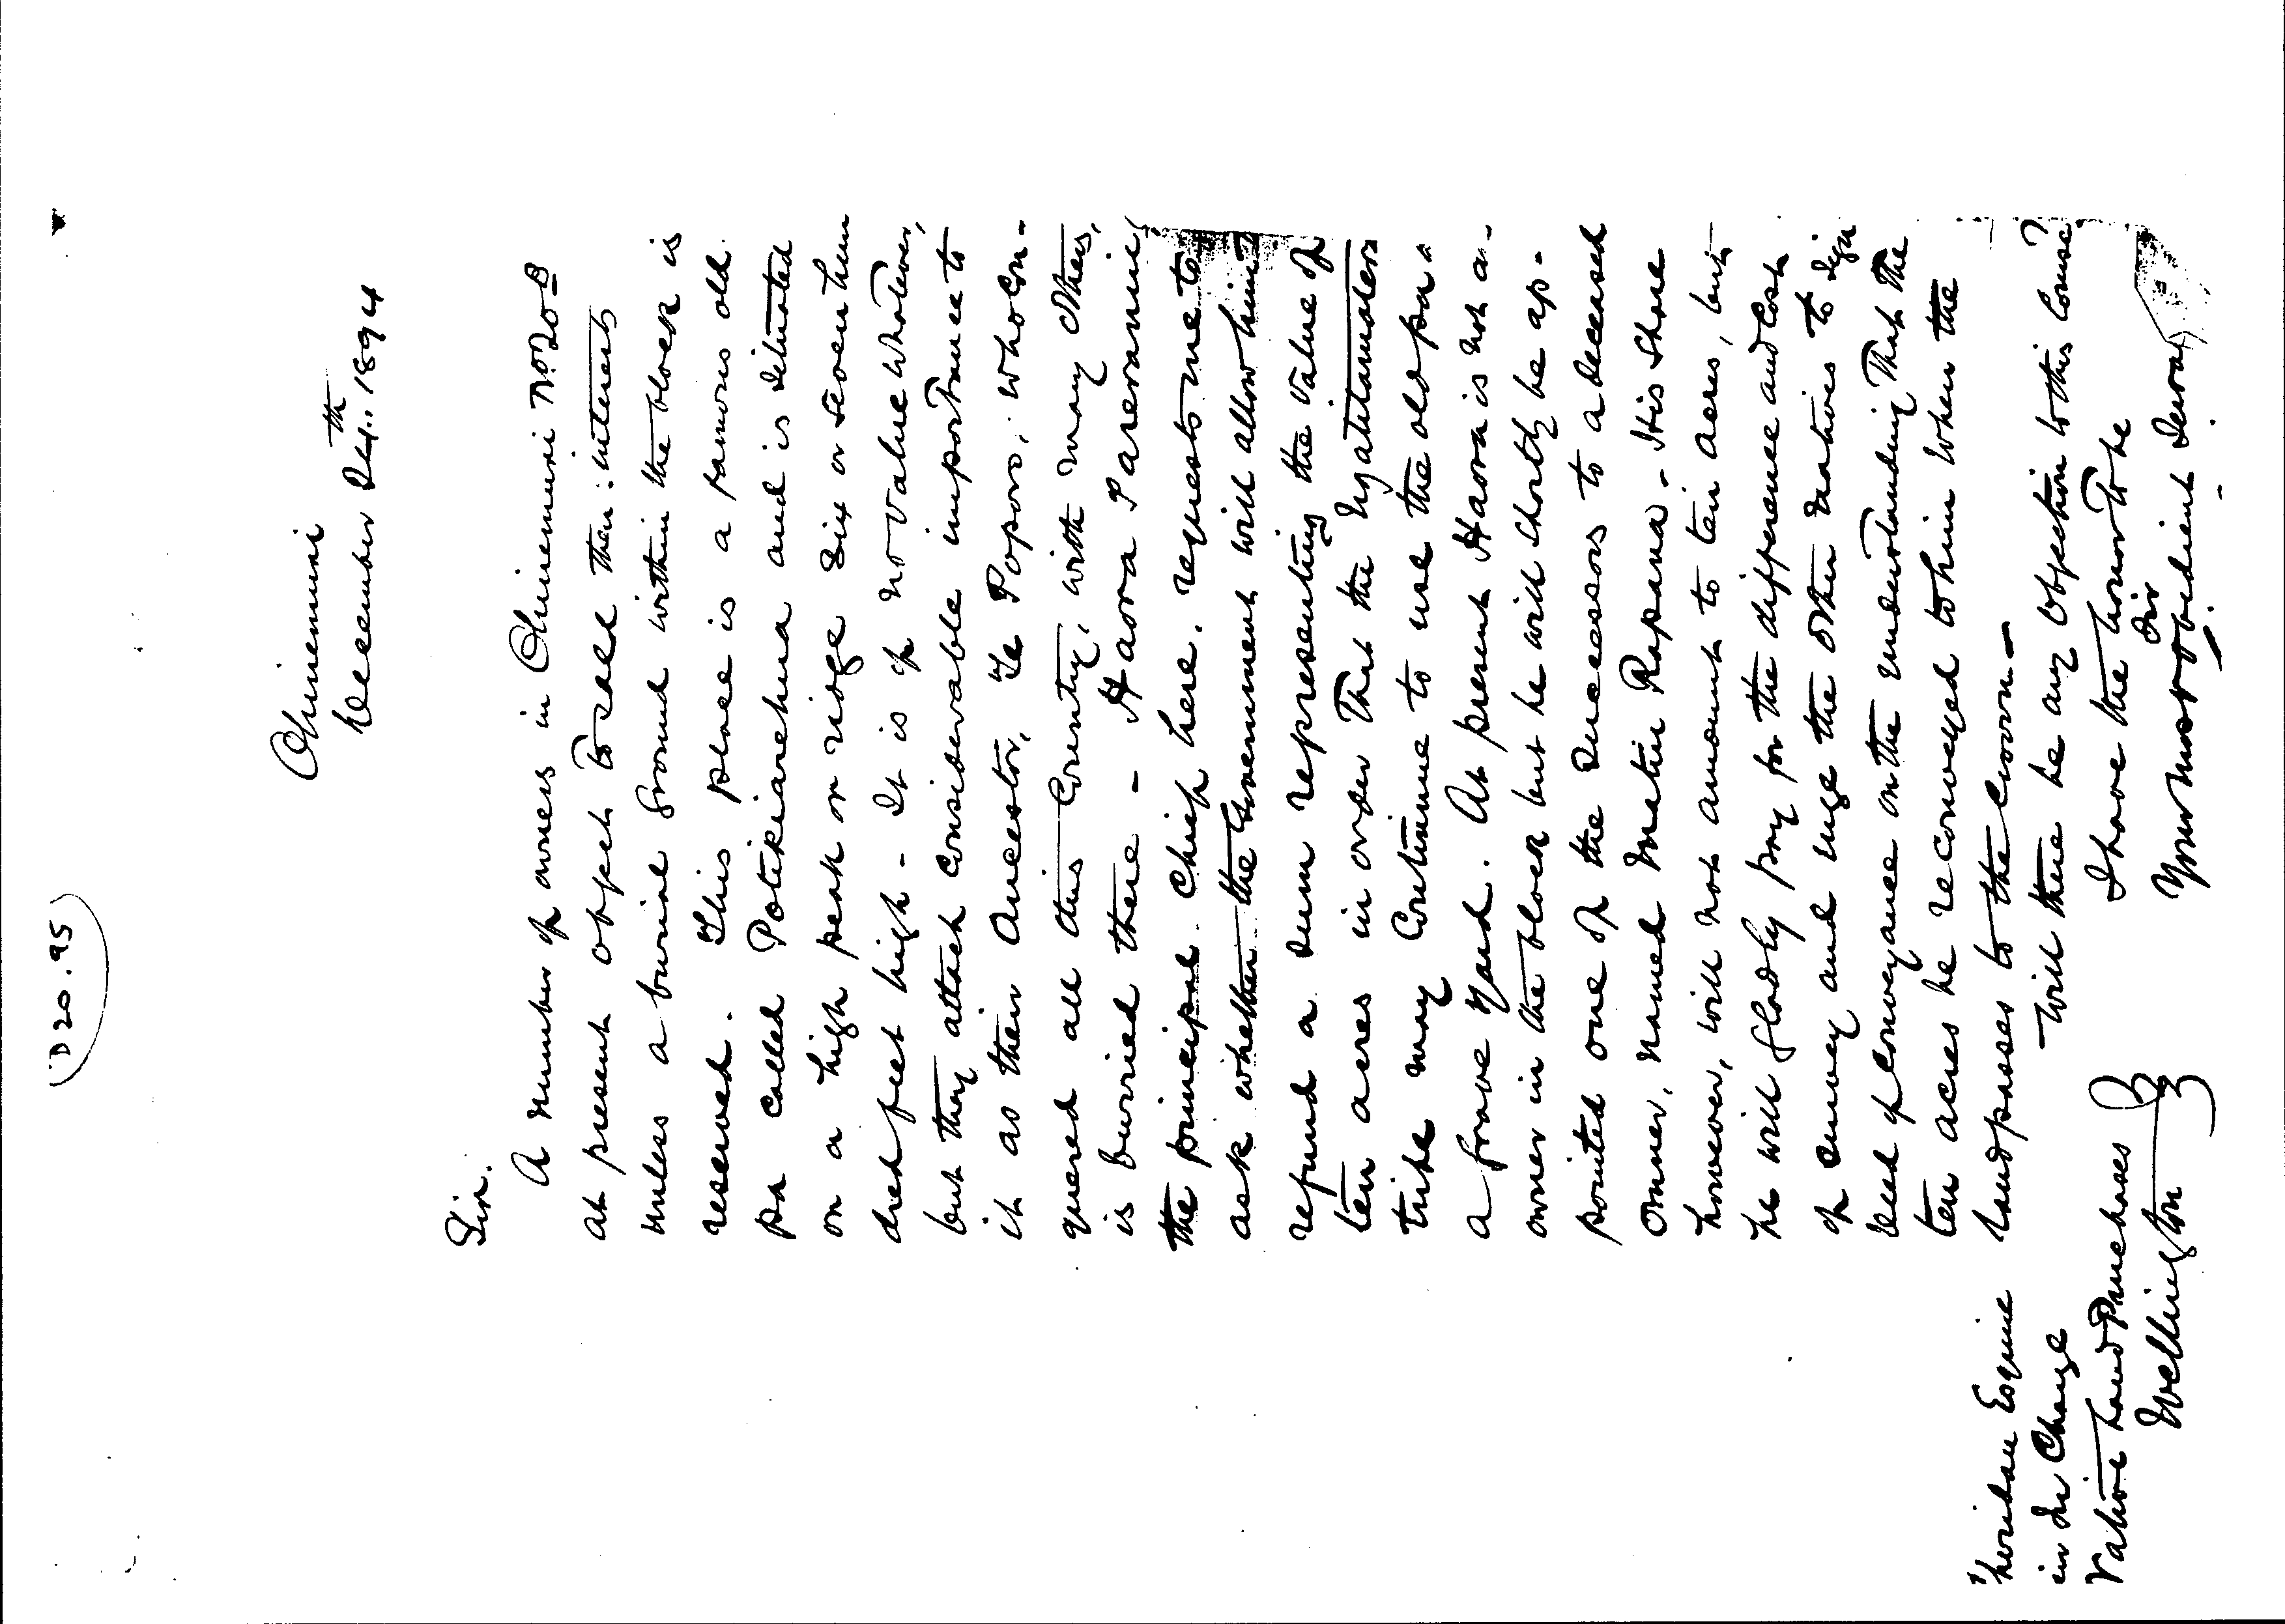 D 20.95
Ohinemuri
December 24th. 1894
Sir.
A number of owners in Ohinemuri No. 20B
at present object to sell their interests
unless a burial ground within the block is
reserved. This place is a famous old
pa called Potikiarehua and is situated
on a high peak or ridge six or seven hun
dred feet high - It is of no value whatever,
but they attach considerable importance to
it as their Ancestor, Te Poporo, who con-
quered all this Country, with many others,
is buried there - Haora Tareranui,
the principal Chief here, requests me to
ask whether the Government will allow him to
refund a sum representing the value of
ten acres in order that the Ngatitamatera
tribe may Continue to use the old pa as
a grave yard. At present Haora is not a-
owner in the block but he will shortly be ap-
pointed one of the successors to a deceased
owner, named Matiu Rapana - His share
however, will not amount to ten acres, but
he will gladly pay for the difference and cost
of survey and urge the other natives to sign
deed of Conveyance on the understanding that the
ten acres be reconveyed to him when the
land passes to the Crown -
Will there be any objection to this course?
I have the honor to be
Sir
Your most obedient Servant
heridan Esquire
in Charge
Native Land Purchases
Wellington